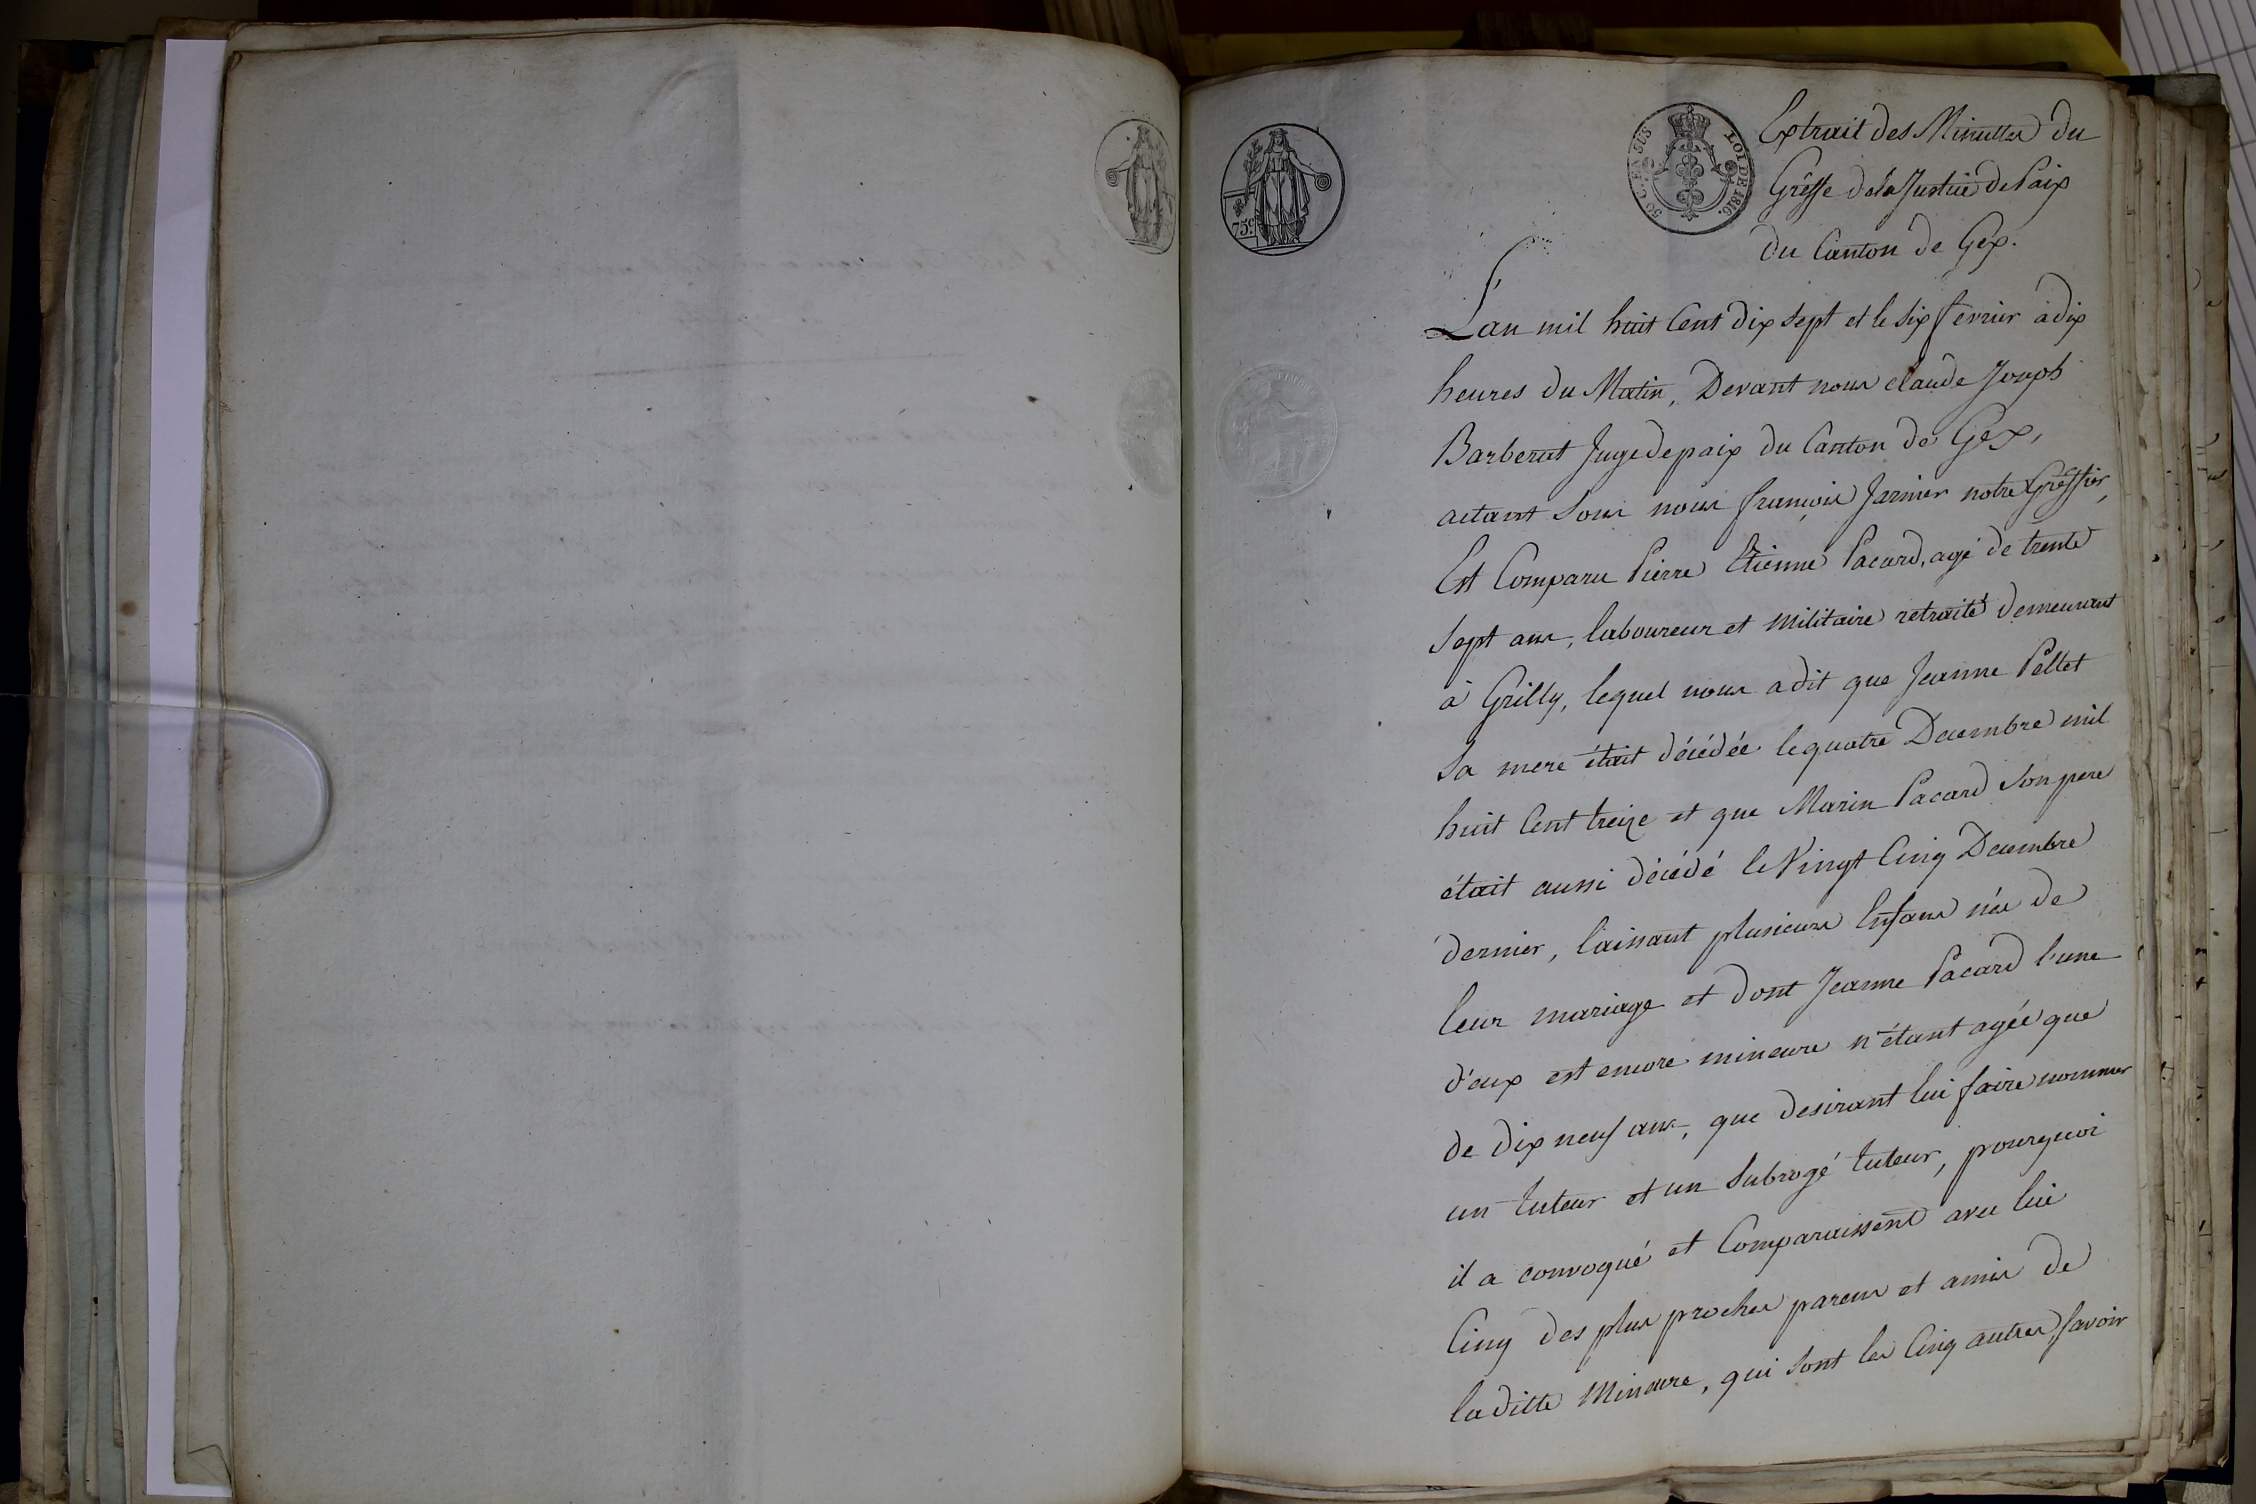 75c.
50 C. EN SUS
LOI DE 1816.
Extrait des Minuttes du
Grêffe de la Justice de Paix
du Canton de Gex.
L'an mil huit Cent dix sept et le six fevrier à dix
heures du Matin, Devant nous claude Joseph
Barberat Juge de paix du Canton de Gex,
actant sous nous françois Jarnier notre Grêffier,
Est Comparu Pierre Etienne Pacard, agé de trente
sept ans, laboureur et militaire retraité demeurant
à Grilly, lequel nous a dit que Jeanne Pellet
sa mere était décédée le quatre Decembre mil
huit Cent treize et que Marin Pacard son pere
était aussi décédé le Vingt Cinq Decembre
dernier, laissant plusieurs Enfans nés de
leur mariage et dont Jeanne Pacard l'une
d'eux est encore mineure n'étant agée que
de dix neuf ans, que desirant lui faire nommer
un tuteur et un subrogé tuteur, pourquoi
il a convoqué et Comparaissent avec lui
Cinq des plus proches parens et amis de
la ditte Mineure, qui sont les Cinq autres, savoir